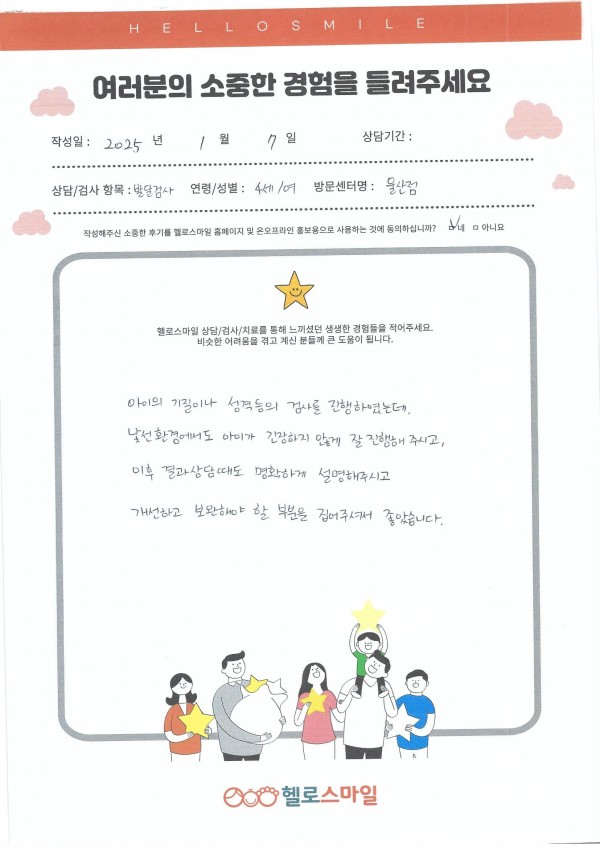 HELLOSMILE
여러분의 소중한 경험을 들려주세요
작성일 : 2025 년 1 월 7 일 상담기간 :
상담/검사 항목 : 발달검사 연령/성별 : 4세/여 방문센터명 : 울산점
작성해주신 소중한 후기를 헬로스마일 홈페이지 및 온오프라인 홍보용으로 사용하는 것에 동의하십니까? ☑네 □아니요
헬로스마일 상담/검사/치료를 통해 느끼셨던 생생한 경험들을 적어주세요.
비슷한 어려움을 겪고 계신 분들께 큰 도움이 됩니다.
아이의 기질이나 성격등의 검사를 진행하였는데,
낯선환경에서도 아이가 긴장하지 않게 잘 진행해 주시고,
이후 결과상담때도 명확하게 설명해주시고
개선하고 보완해야 할 부분을 집어주셔서 좋았습니다.
헬로스마일